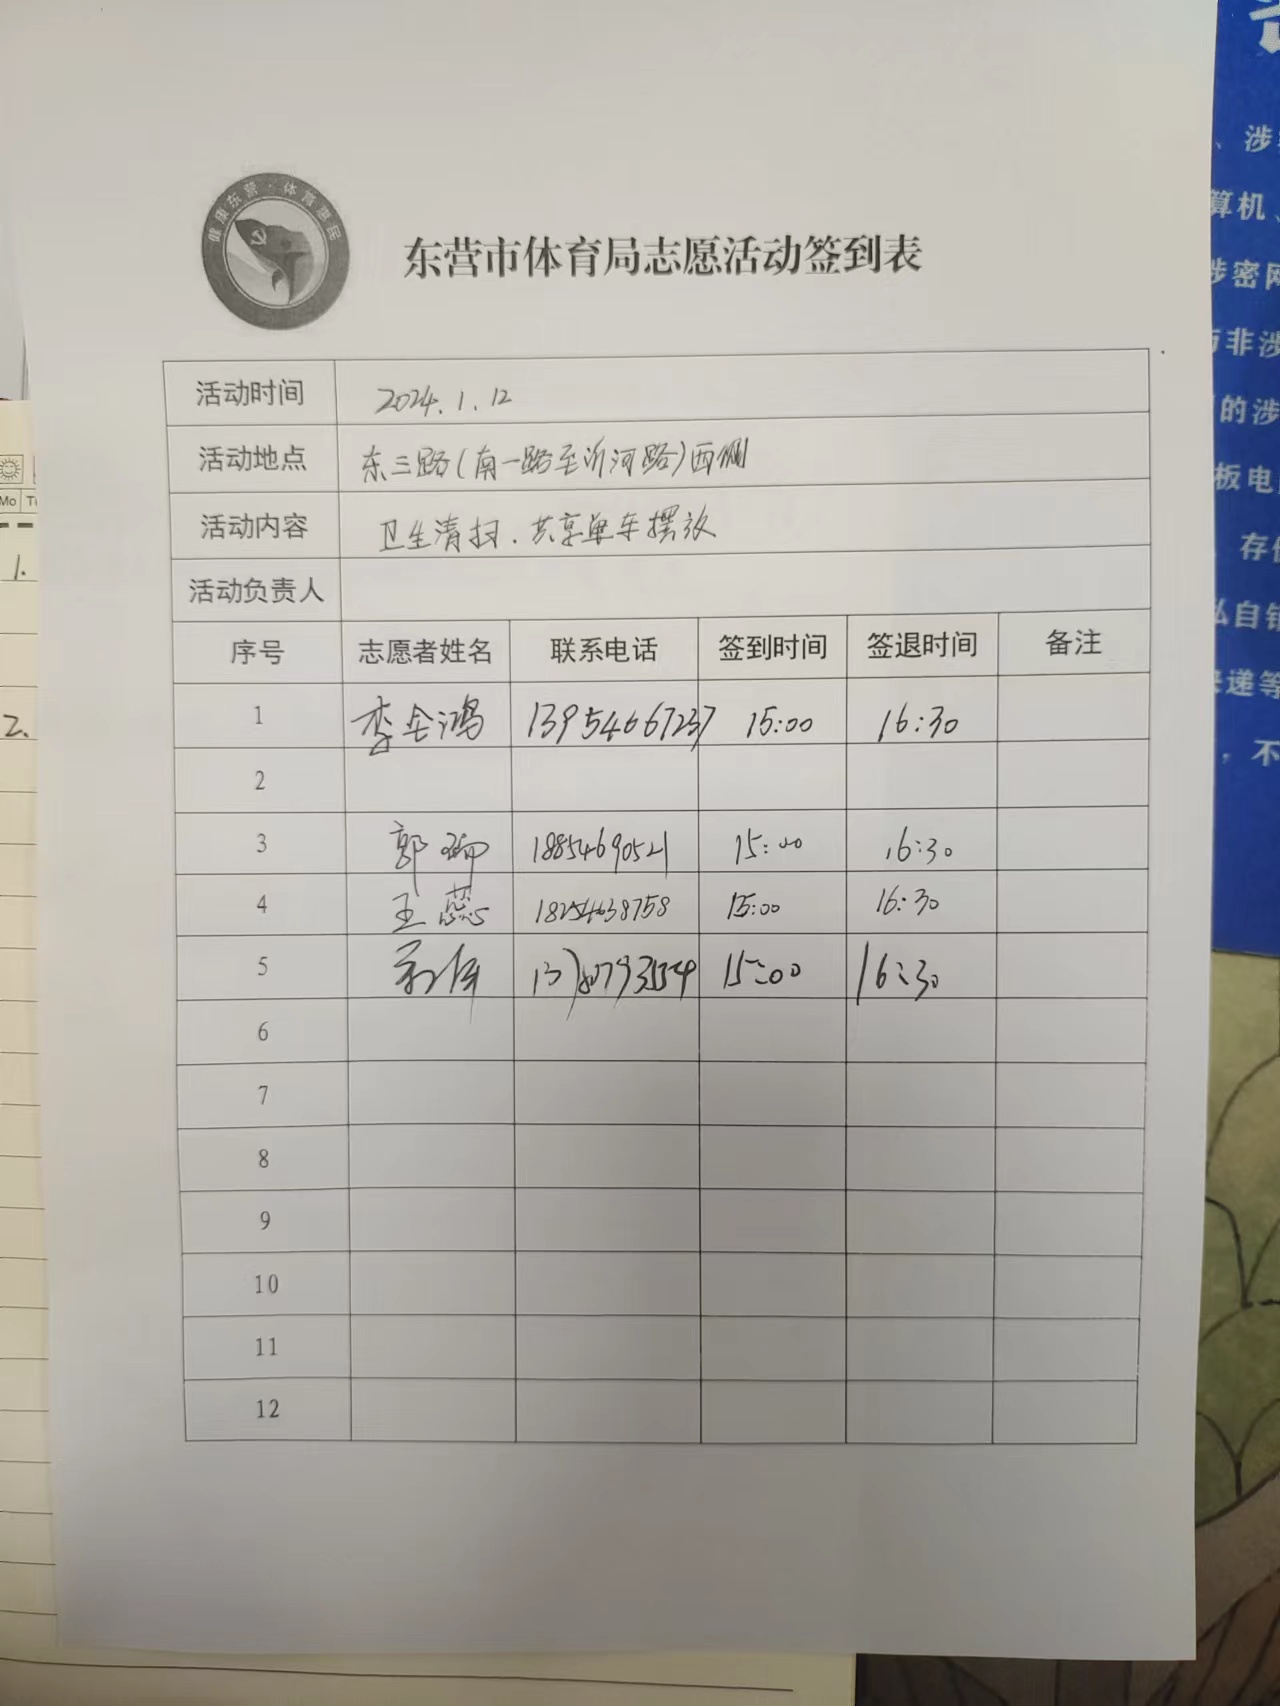 健康东营·体育惠民
东营市体育局志愿活动签到表
活动时间 2024.1.12
活动地点 东三路(南一路至沂河路)西侧
活动内容 卫生清扫、共享单车摆放
活动负责人
序号 志愿者姓名 联系电话 签到时间 签退时间 备注
1 李金鸿 13954667237 15:00 16:30
2
3 郭 18854690521 15:00 16:30
4 王蕊 18254638758 15:00 16:30
5 15:00 16:30
6
7
8
9
10
11
12
Mo
1.
2.
、涉
算机、
涉密网
与非涉
的涉
板电
存
私自销
快递等
，不